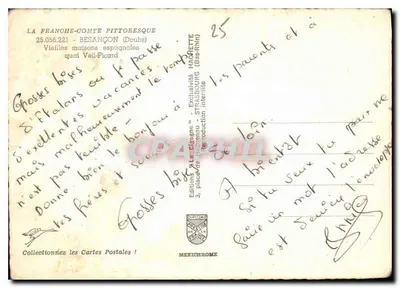 LA FRANCHE-COMTÉ PITTORESQUE
25.056.221 - BESANÇON (Doubs)
Vieilles maisons espagnoles
quai Veil-Picard
25
Grosses bises
d'Étalans où je passe
d'excellentes vacances.
mais malheureusement le temps
n'est pas terrible -
Donne bien le bonjour à
tes frères et soeurs
Grosses bises
tes parents et à
De loin
A bientôt
Si tu veux tu
faire un mot l'adresse
est derrière l'enveloppe
Editions "La Cigogne" - Exclusivité HACHETTE
STRASBOURG (Bas-Rhin)
Reproduction interdite
CPAPHIL.COM
MEXICHROME
Collectionnez les Cartes Postales !